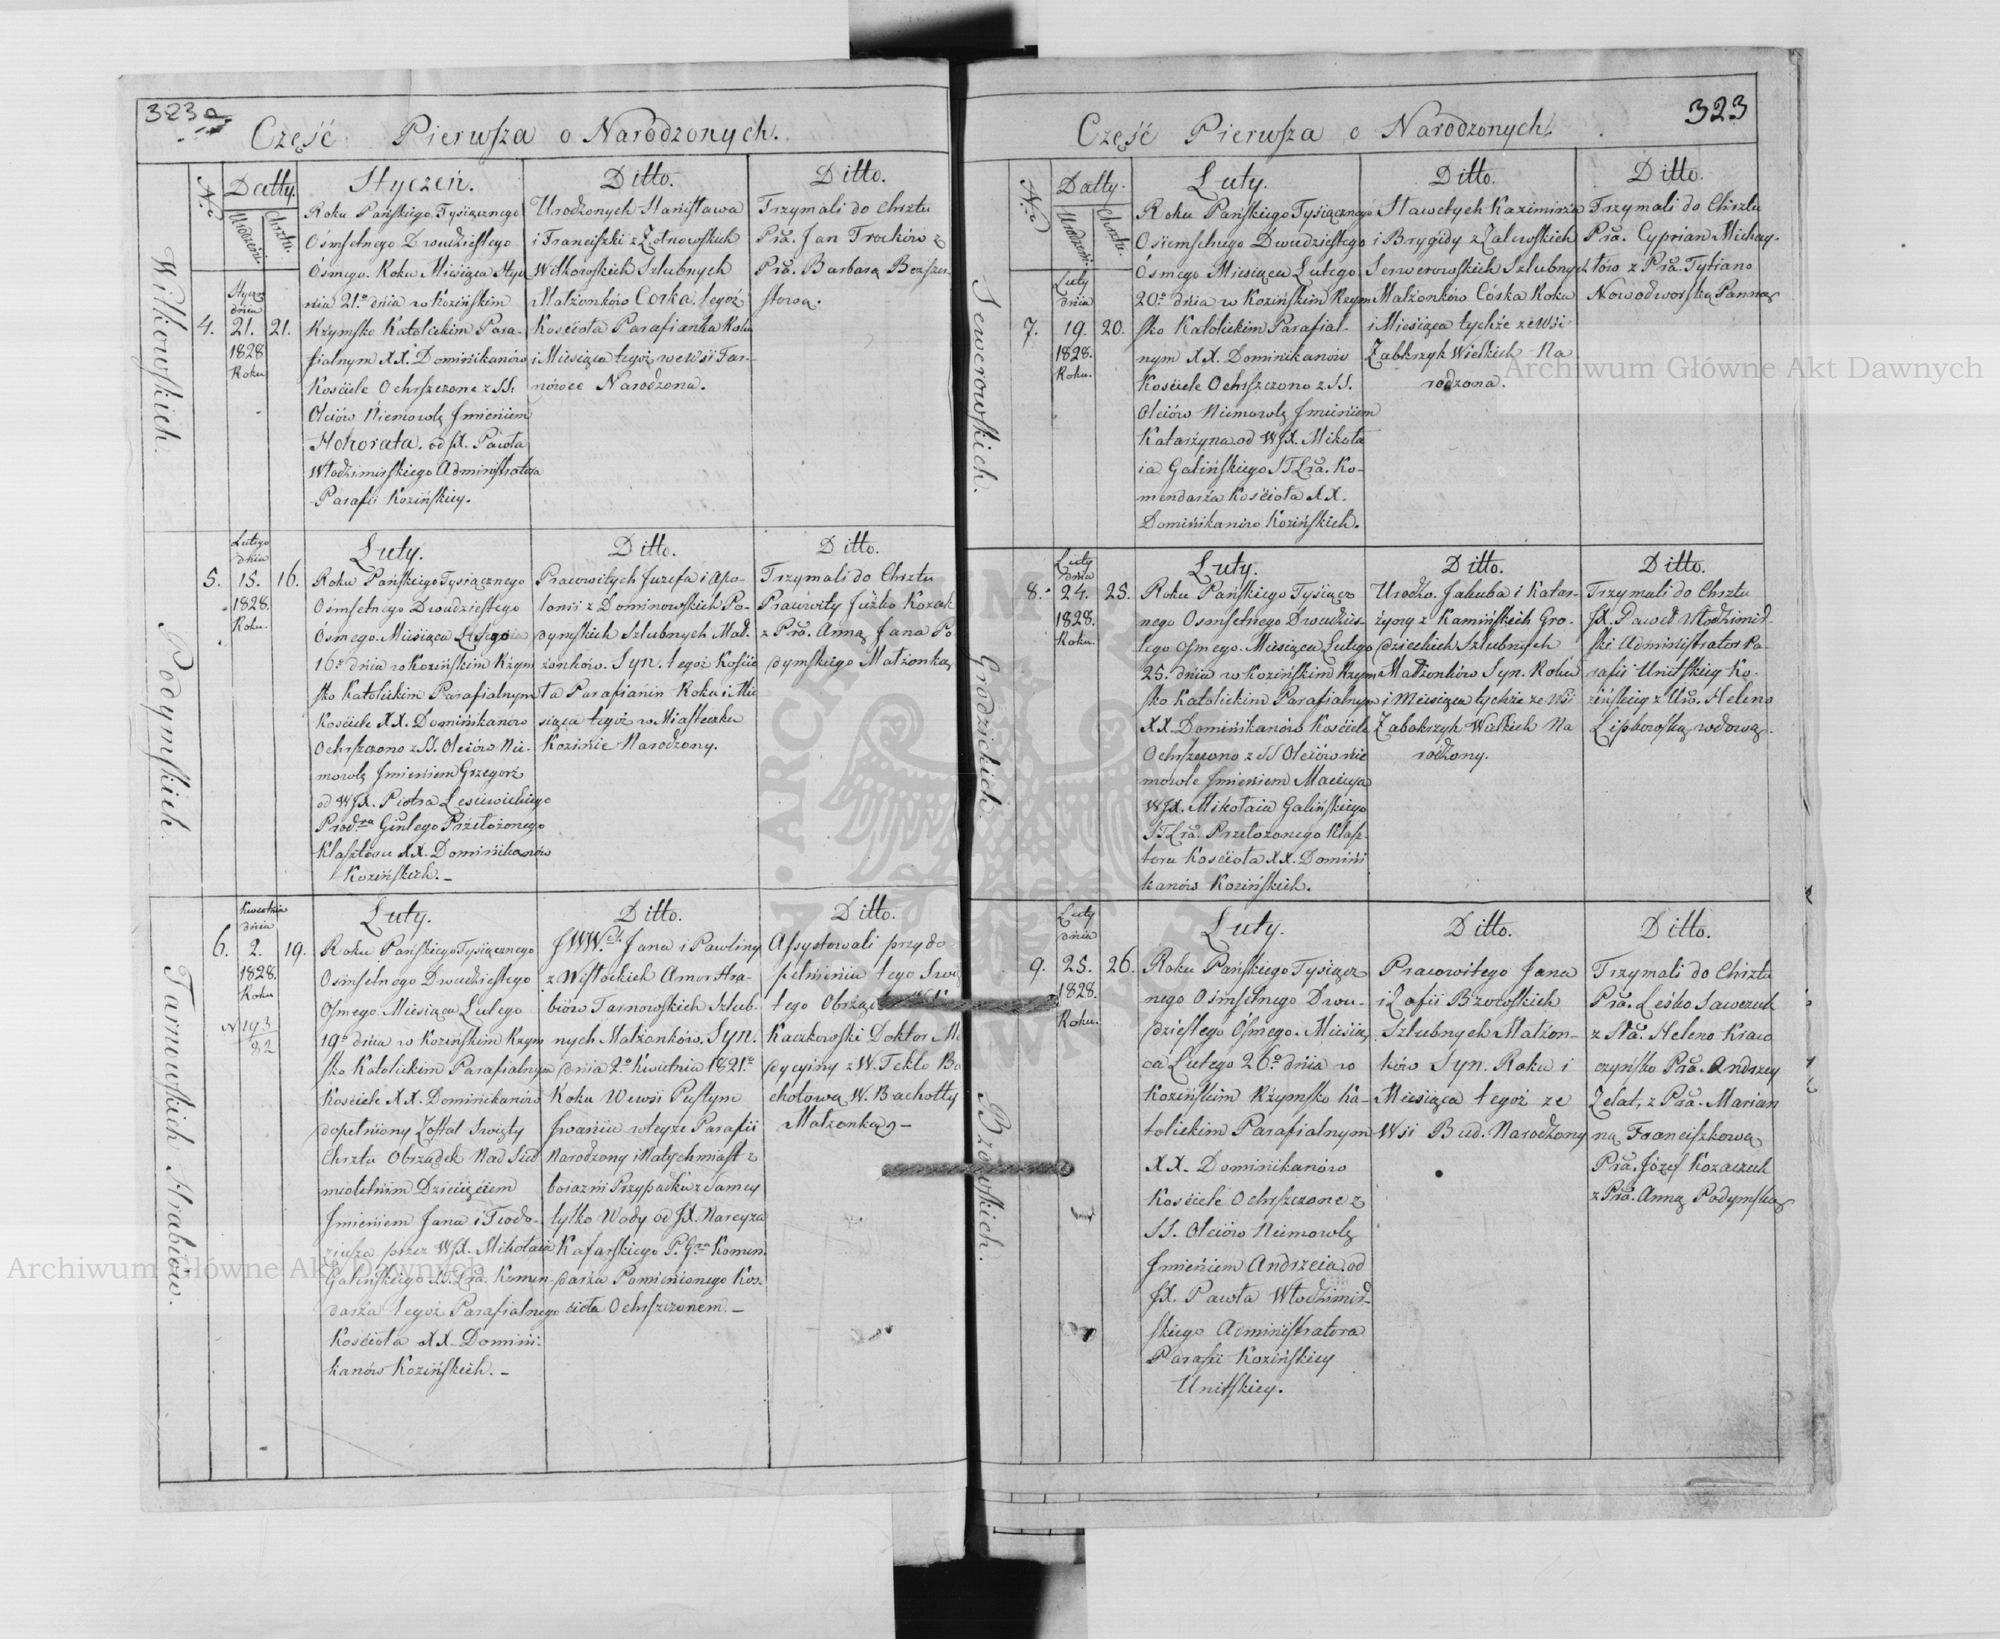 323a
Część Pierwsza o Narodzonych.
Nro
Datty.
Urodzeń.
Chrztu.
Styczeń.
Ditto.
Ditto.
Wilkowskich.
4.
Stycz
dnia
21.
1828
Roku
21.
Roku Pańskiego Tysiącznego
Ośmsetnego Dwudziestego
Ósmego. Roku Miesiąca Stycz
nia 21.º dnia w Kozińskim
Rzymsko Katolickim Para-
fialnym XX. Dominikanów
Kościele Ochrzczone z SS.
Oleiów Niemowlę Imieniem
Honorata. od JX. Pawła
Włodzimirskiego Administratora
Parafii Kozińskiey.
Urodzonych Stanisława
i Franciszki z Zotnowskich
Wilkowskich Szlubnych
Małżonków Corka. tegoż
Kościoła Parafianka Roku
i Miesiąca tegoż we wsi Tar-
nówce Narodzona.
Trzymali do Chrztu
Pra. Jan Troków z
Pra. Barbarą Bezszer-
stową.
Podymskich.
5.
Lutego
dnia
15.
1828.
Roku.
16.
Luty.
Ditto.
Ditto.
Roku Pańskiego Tysiącznego
Ośmsetnego Dwudziestego
Ósmego. Miesiąca Lutego
16.º dnia w Kozińskim Rzym
sko Katolickim Parafialnym
Kościele XX. Dominikanow
Ochrzczono z SS. Oleiów Nie-
mowlę Imieniem Grzegorz
od WJX. Piotra Lesiewickiego
Przełożonego
Klasztoru XX. Dominikanów
Kozińskich. –
Pracowitych Juzefa i Apo-
lonii z Dominowskich Po-
dymskich Szlubnych Mał-
żonków. Syn. tegoż Kościo
ła Parafianin Roku i Mie
siąca tegoż w Miasteczku
Kozinie Narodzony.
Trzymali do Chrztu
Pracowity Juzko Kozak
z Pra. Anną Jana Po-
dymskiego Małżonką
Tarnowskich Hrabiów.
6.
Kwietnia
dnia
2.
1828.
Roku
N 193
82
19.
Luty.
Ditto.
Ditto.
Roku Pańskiego Tysiącznego
Ośmsetnego Dwudziestego
Osmego. Miesiąca Lutego
19.º dnia w Kozińskim Rzym
sko Katolickim Parafialnym
Kościele XX. Dominikanów
dopełniony Został Święty
Chrztu Obrządek Nad Sied
mioletnim Dziecięciem
Imieniem Jana i Teodo-
ziusza przez WJX. Mikołaia
Galińskiego STLra. Komen-
darza tegoż Parafialnego
Kościoła XX. Domini-
kanów Kozińskich. –
JWW. Jana i Pawliny
z Wisłockich Amor Hra-
biów Tarnowskich Szlub-
nych Małżonków. Syn.
dnia 2.º Kwietnia 1821.º
Roku We wsi Pustym
Iwaniu w teyże Parafii
Narodzony i Natychmiast z
boiazni Przypadku z Samey
tylko Wody od JX. Narcyza
Kafarskiego P. Gra Komen-
darza Pomienionego Koś-
cioła Ochrzczonem. –
Assystowali przy do
pełnieniu tego Świę
tego Obrząd
Kaczkowski Doktor Me
dycyiny z W. Teklą Ba
chotową W. Bachotty
Małzonką –
323
Część Pierwsza o Narodzonych.
Nro
Datty.
Urodzeń.
Chrztu.
Luty.
Ditto.
Ditto.
Sewerowskich.
7.
Luty
dnia
19.
1828.
Roku.
20.
Roku Pańskiego Tysiącznego
Osiemsetnego Dwudziestego
Ósmego Miesiąca Lutego.
20.º dnia w Kozińskim Rzym
sko Katolickim Parafial-
nym XX. Dominikanów
Kościele Ochrzczono z SS.
Oleiów Niemowlę Imieniem
Katarzyna od WJX. Mikoła
ia Galińskiego STLra. Ko-
mendarza Kościoła XX.
Dominikanów Kozińskich.
Sławetych Kazimirza
i Brygidy z Zalewskich
Serwerowskich Szlubnych
Małżonków Córka Roku
i Miesiąca tychże ze Wsi
Zabkrzyk Wielkich Na
rodzona.
Trzymali do Chrztu
Pra. Cyprian Michay-
łów z Pra. Tytianą
Nowodworską Panną
Grodzickich
8.
Luty
dnia
24.
1828.
Roku.
25.
Luty.
Ditto.
Ditto.
Roku Pańskiego Tysiącz
nego Osmsetnego Dwudzies-
tego Osmego. Miesiąca Lutego
25. dnia w Kozińskim Rzym
sko Katolickim Parafialnym
XX. Dominikanów Kościele
Ochrzczono z SS Oleiów nie
mowle Imieniem Macieya
WJX. Mikołaia Galińskiego
STLra. Przełożonego Klasz-
toru Kościoła XX. Domini
kanów Kozińskich.
Urodzo. Jakuba i Katar-
zyny z Kamińskich Gro-
dzickich Szlubnych
Małżonków Syn. Roku
i Miesiąca tychże ze Wsi
Zabokrzyk Wielkich Na
rodzony.
Trzymali do Chrztu
JX. Paweł Włodzimir
ski Administrator Pa-
rafii Unitskiey Ko-
zińskiey z Uro. Heleną
Lipkowską wdową.
Bzowskich.
9.
Luty
dnia
25.
1828.
Roku.
26.
Luty.
Ditto.
Ditto.
Roku Pańskiego Tysiącz
nego Ośmsetnego Dwu-
dziestego Osmego. Miesią
ca Lutego 26.º dnia w
Kozińskim Rzymsko Ka-
tolickim Parafialnym
XX. Dominikanów
Kościele Ochrzczone z
SS. Oleiów Niemowlę
Imieniem Andrzeia od
JX. Pawła Włodzimir-
skiego Administratora
Parafii Kozińskiey
Unitskiey.
Pracowitego Jana
i Zofii Bzowskich
Szlubnych Małżon-
ków Syn. Roku i
Miesiąca tegoż ze
Wsi Bud. Narodzony
Trzymali do Chrztu
Pra. Leśko Sawczuk
z Sta. Heleną Kraw
czyńską Pra. Andrzey
Zelat, z Pra. Marian
ną Franciszkową
Pra. Józef Kozaczuk
z Pra. Anną Podymską
Archiwum Główne Akt Dawnych
Archiwum Główne Akt Dawnych